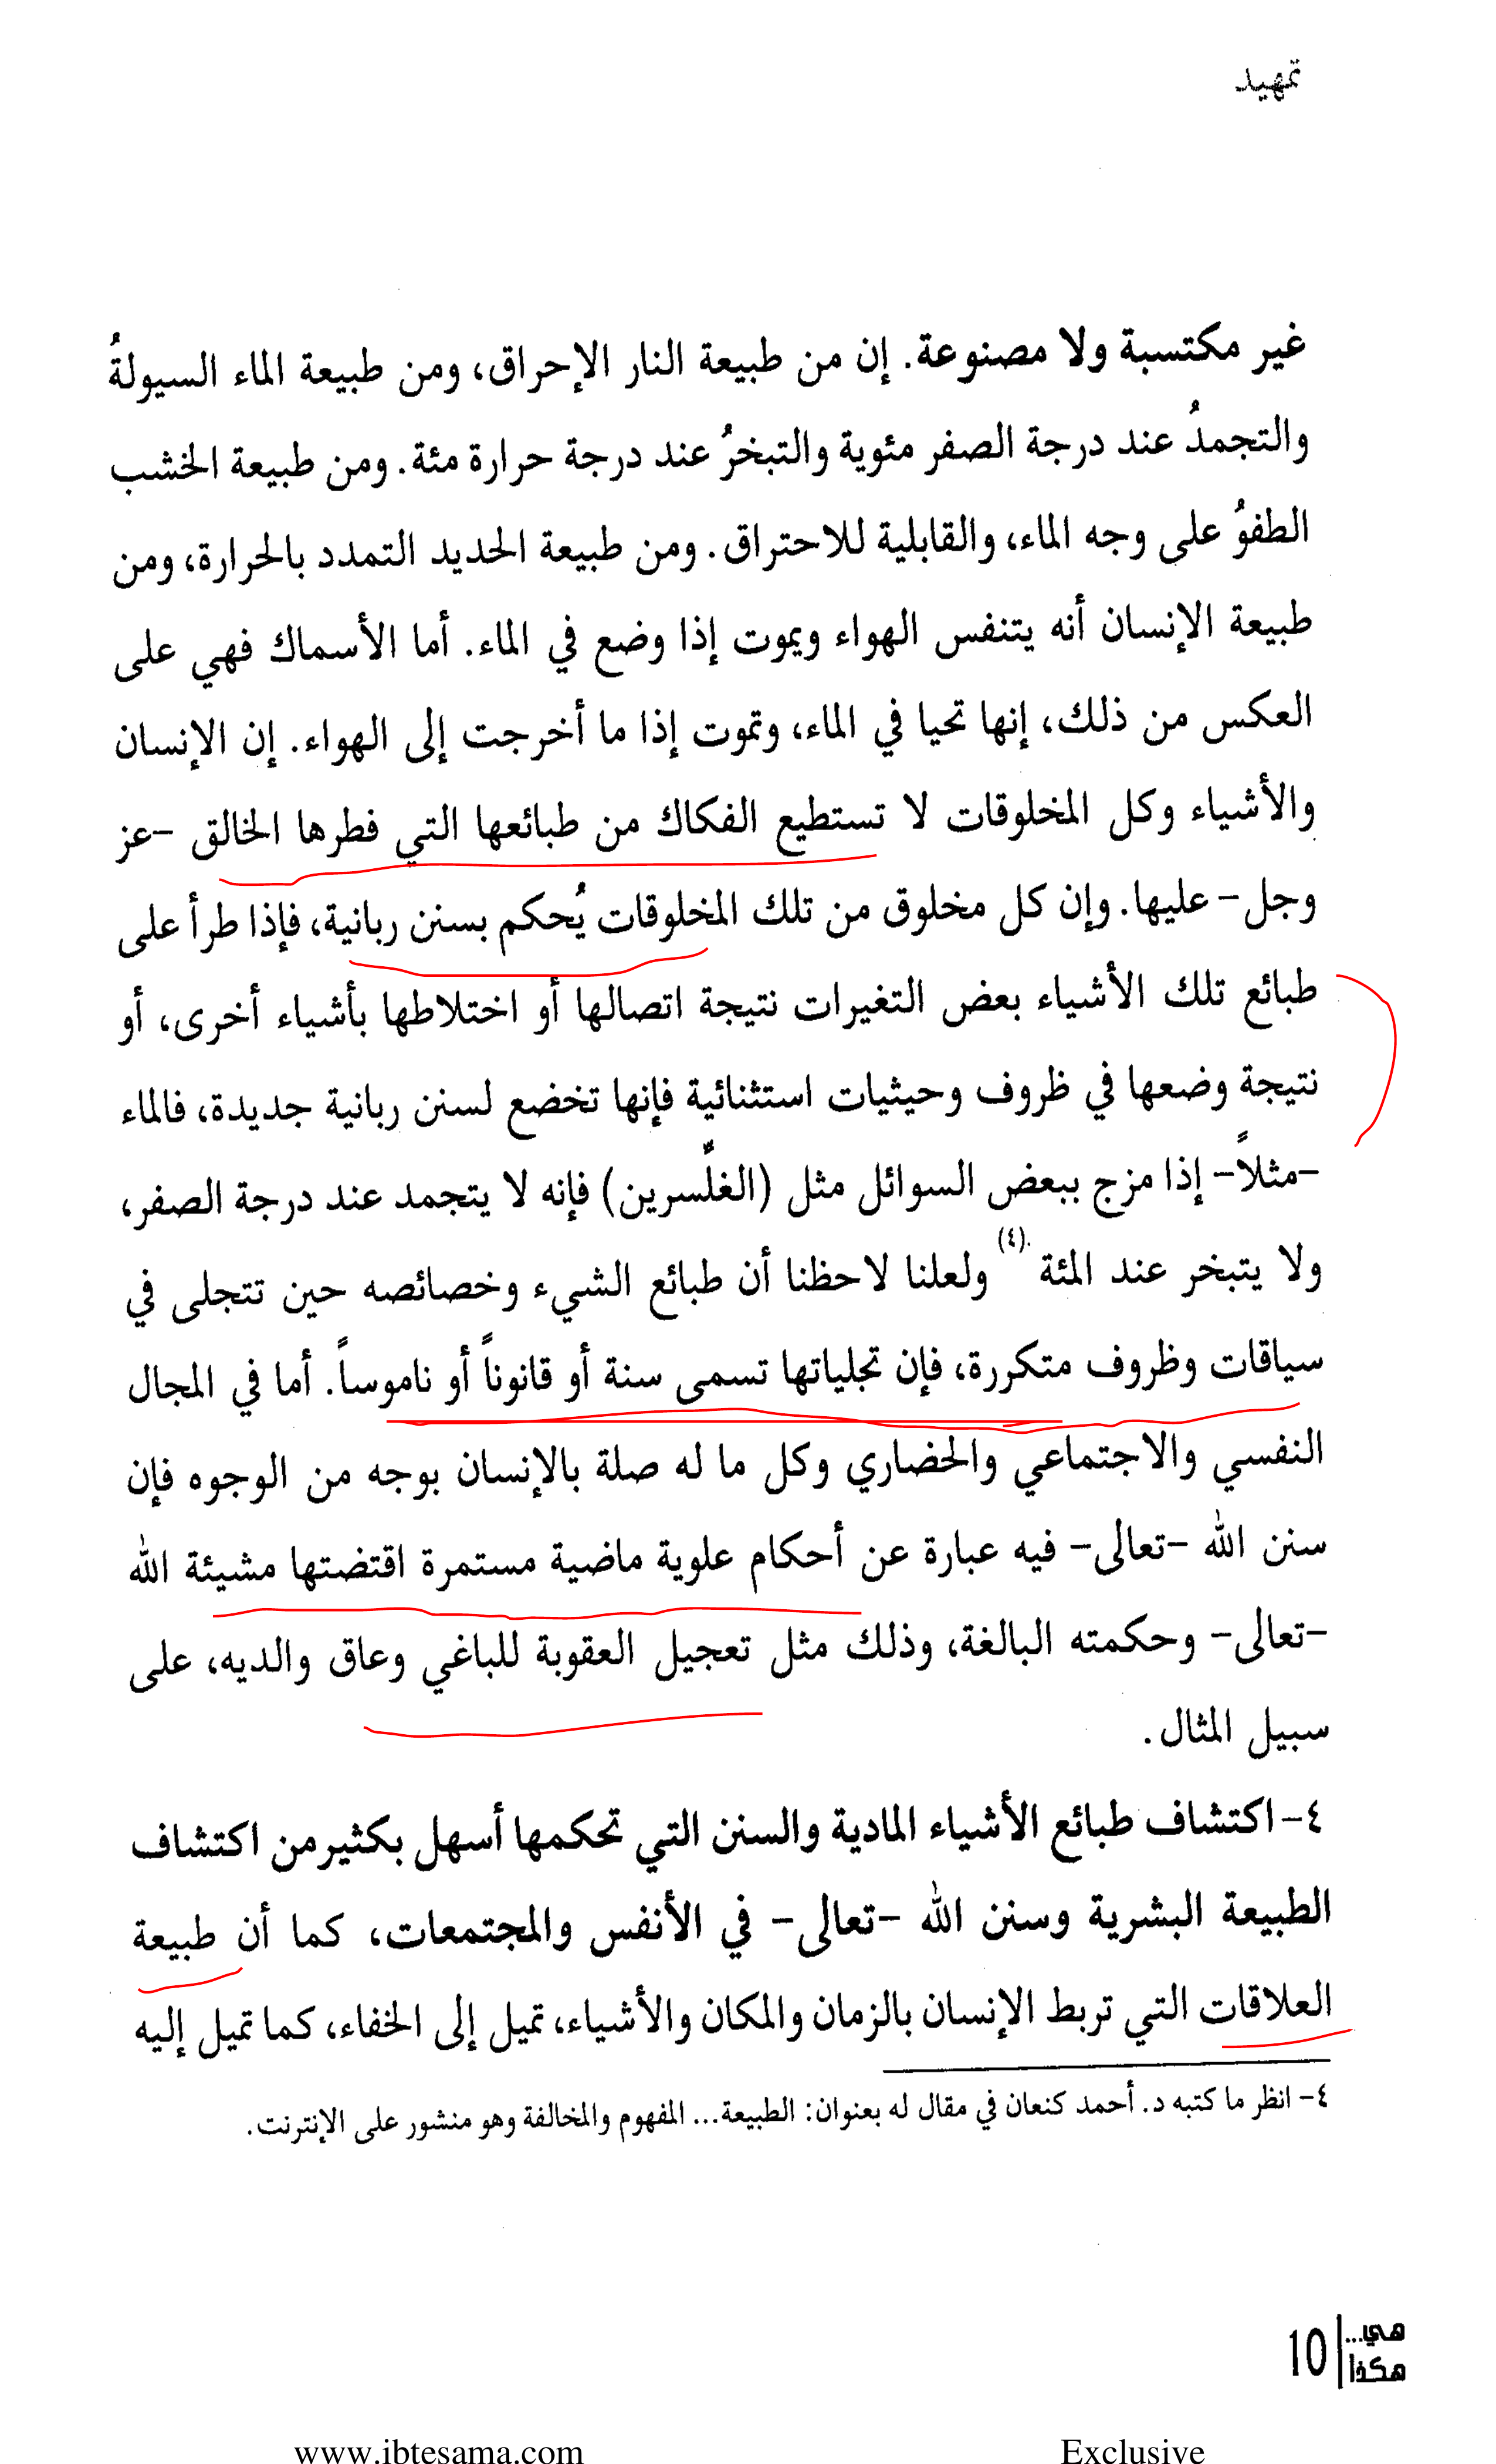 تمهيد
غير مكتسبة ولا مصنوعة. إن من طبيعة النار الإحراق، ومن طبيعة الماء السيولةُ
والتجمدُ عند درجة الصفر مئوية والتبخرُ عند درجة حرارة مئة. ومن طبيعة الخشب
الطفوُ على وجه الماء، والقابلية للاحتراق. ومن طبيعة الحديد التمدد بالحرارة، ومن
طبيعة الإنسان أنه يتنفس الهواء ويموت إذا وضع في الماء. أما الأسماك فهي على
العكس من ذلك، إنها تحيا في الماء، وتموت إذا ما أخرجت إلى الهواء. إن الإنسان
والأشياء وكل المخلوقات لا تستطيع الفكاك من طبائعها التي فطرها الخالق -عز
وجل- عليها. وإن كل مخلوق من تلك المخلوقات يُحكم بسنن ربانية، فإذا طرأ على
طبائع تلك الأشياء بعض التغيرات نتيجة اتصالها أو اختلاطها بأشياء أخرى، أو
نتيجة وضعها في ظروف وحيثيات استثنائية فإنها تخضع لسنن ربانية جديدة، فالماء
-مثلاً- إذا مزج ببعض السوائل مثل (الغلّسرين) فإنه لا يتجمد عند درجة الصفر،
ولا يتبخر عند المئة.(٤) ولعلنا لاحظنا أن طبائع الشيء وخصائصه حين تتجلى في
سياقات وظروف متكررة، فإن تجلياتها تسمى سنة أو قانوناً أو ناموساً. أما في المجال
النفسي والاجتماعي والحضاري وكل ما له صلة بالإنسان بوجه من الوجوه فإن
سنن الله -تعالى- فيه عبارة عن أحكام علوية ماضية مستمرة اقتضتها مشيئة الله
-تعالى- وحكمته البالغة، وذلك مثل تعجيل العقوبة للباغي وعاق والديه، على
سبيل المثال.
٤- اكتشاف طبائع الأشياء المادية والسنن التي تحكمها أسهل بكثير من اكتشاف
الطبيعة البشرية وسنن الله -تعالى- في الأنفس والمجتمعات، كما أن طبيعة
العلاقات التي تربط الإنسان بالزمان والمكان والأشياء، تميل إلى الخفاء، كما تميل إليه
٤- انظر ما كتبه د. أحمد كنعان في مقال له بعنوان: الطبيعة... المفهوم والمخالفة وهو منشور على الإنترنت.
هي...
هكذا
10
www.ibtesama.com Exclusive